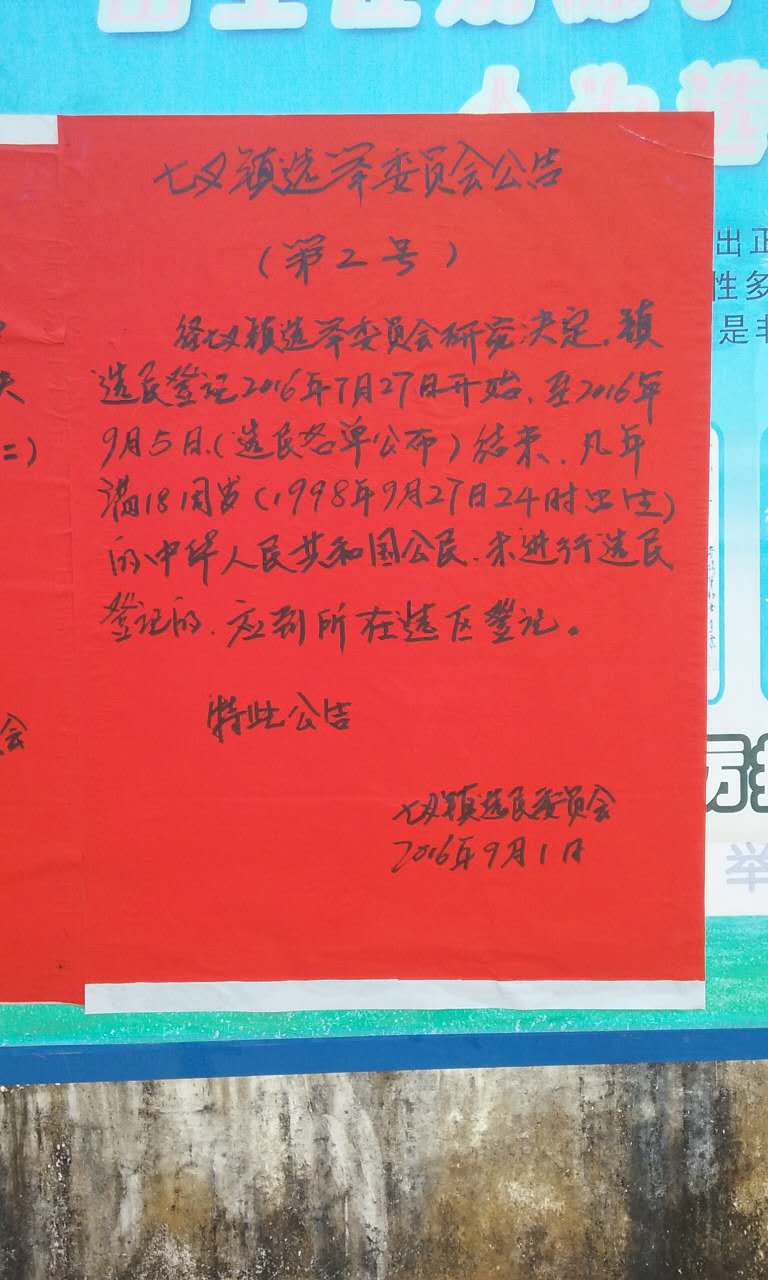 七叉镇选举委员会公告
（第2号）
经七叉镇选举委员会研究决定，镇
选民登记2016年7月27日开始，至2016年
9月5日（选民名单公布）结束，凡年
满18周岁（1998年9月27日24时出生）
的中华人民共和国公民，未进行选民
登记的，应到所在选区登记。
特此公告
七叉镇选民委员会
2016年9月1日
二）
会
出正
性多
是非
举